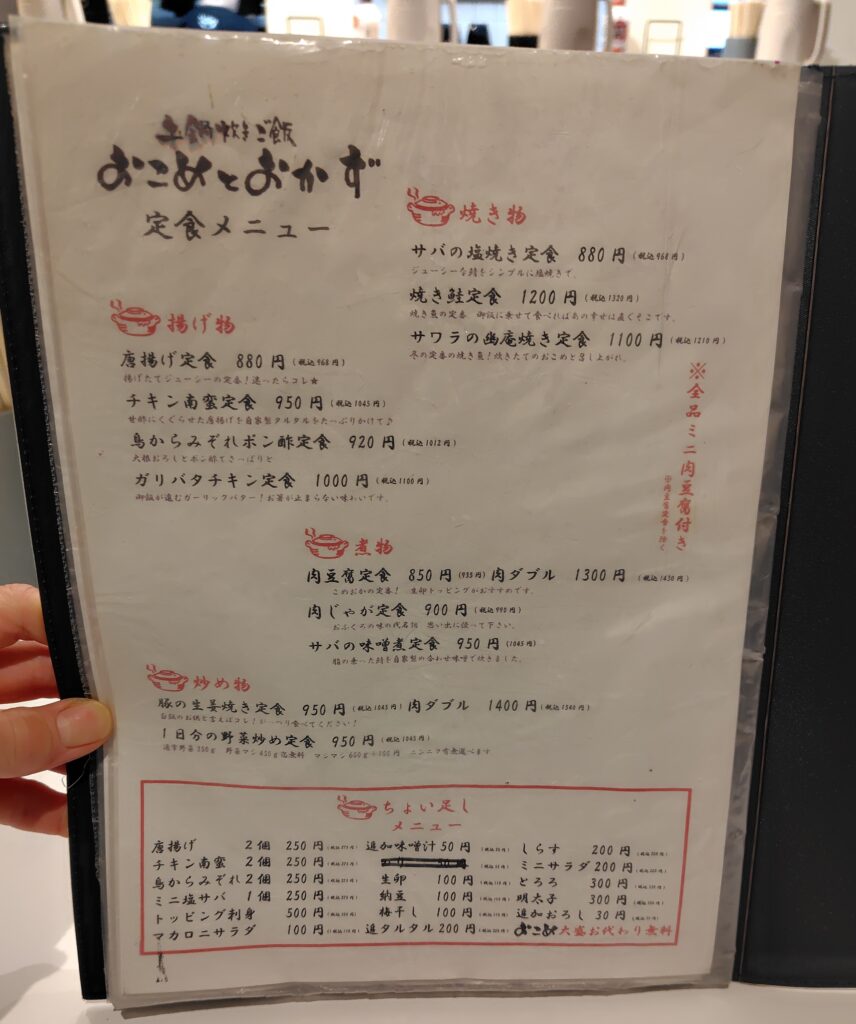 土鍋炊きご飯
おこめとおかず
定食メニュー
揚げ物
唐揚げ定食 880円(税込968円)
揚げたてジューシーの定番！迷ったらコレ★
チキン南蛮定食 950円(税込1045円)
甘酢にくぐらせた唐揚げを自家製タルタルをたっぷりかけて♪
鳥からみぞれポン酢定食 920円(税込1012円)
大根おろしとポン酢でさっぱりと
ガリバタチキン定食 1000円(税込1100円)
御飯が進むガーリックバター！お箸が止まらない味わいです。
焼き物
サバの塩焼き定食 880円(税込968円)
ジューシーな鯖をシンプルに塩焼きで。
焼き鮭定食 1200円(税込1320円)
焼き魚の定番 御飯に乗せて食べればあの幸せは直ぐそこです。
サワラの幽庵焼き定食 1100円(税込1210円)
冬の定番の焼き魚！炊きたてのおこめと召し上がれ。
※全品ミニ肉豆腐付き
※肉豆腐定食を除く
煮物
肉豆腐定食 850円(935円) 肉ダブル 1300円(税込1430円)
こめおかの定番！ 生卵トッピングがおすすめです。
肉じゃが定食 900円(税込990円)
おふくろの味の代名詞 思い出に浸って下さい。
サバの味噌煮定食 950円(1045円)
脂の乗った鯖を自家製の合わせ味噌で炊きました。
炒め物
豚の生姜焼き定食 950円(税込1045円) 肉ダブル 1400円(税込1540円)
白飯のお供と言えばコレ！がっつり食べてください！
1日分の野菜炒め定食 950円(税込1045円)
通常野菜350g 野菜マシ450g迄無料 マシマシ600g+100円 ニンニク有無選べます
ちょい足し
メニュー
唐揚げ 2個 250円(税込275円) 追加味噌汁50円(税込55円) しらす 200円(税込220円)
チキン南蛮 2個 250円(税込275円) ミニサラダ200円(税込220円)
鳥からみぞれ2個 250円(税込275円) 生卵 100円(税込110円) とろろ 300円(税込330円)
ミニ塩サバ 1個 250円(税込275円) 納豆 100円(税込110円) 明太子 300円(税込330円)
トッピング刺身 500円(税込550円) 梅干し 100円(税込110円) 追加おろし 30円(税込33円)
マカロニサラダ 100円(税込110円) 追タルタル200円(税込220円) おこめ大盛お代わり無料